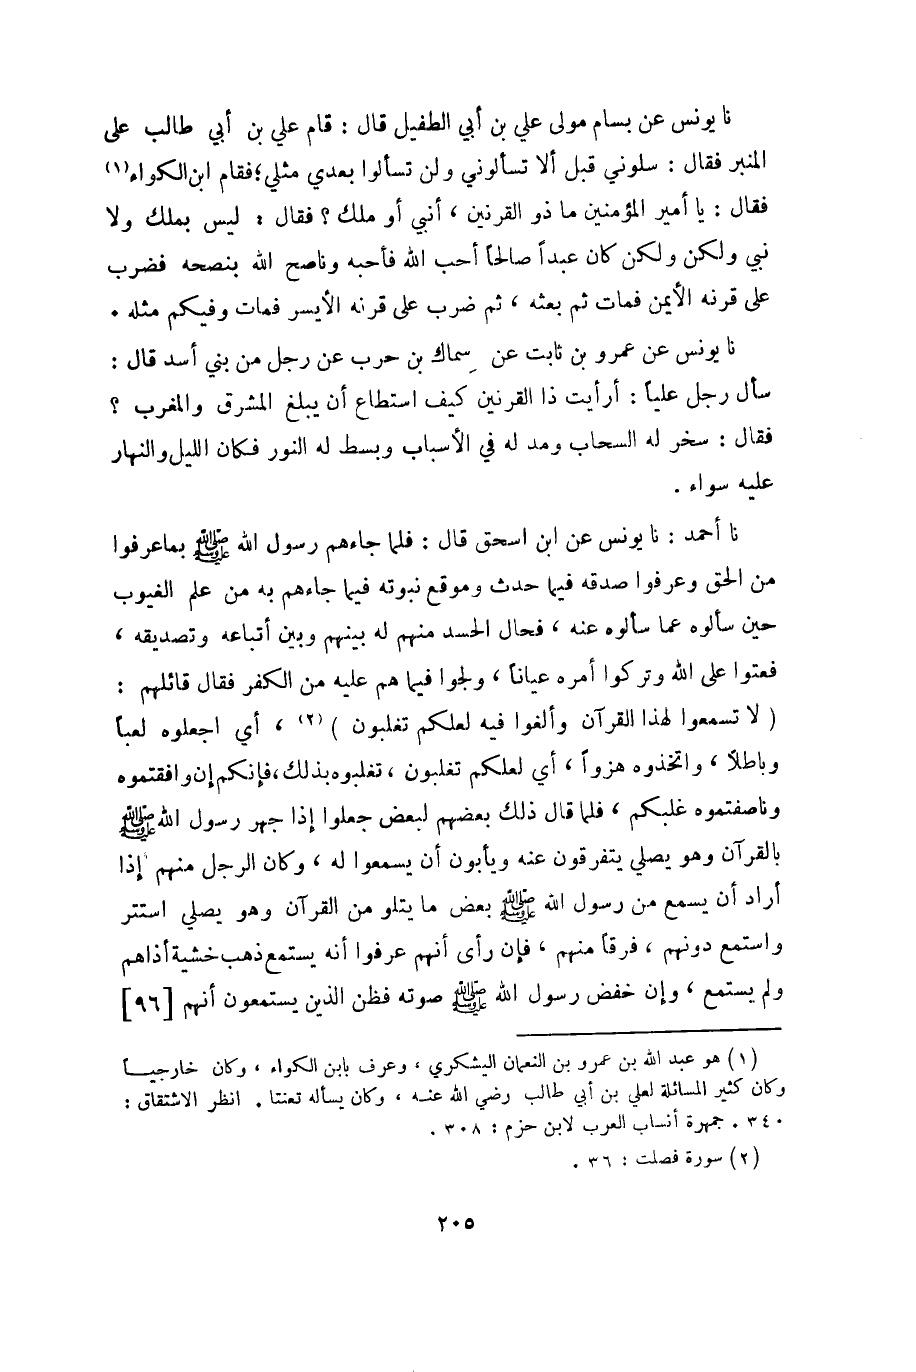 نا يونس عن بسام مولى علي بن أبي الطفيل قال : قام علي بن أبي طالب على
المنبر فقال : سلوني قبل ألا تسألوني ولن تسألوا بعدي مثلي؛ فقام ابن الكواء (١)
فقال : يا أمير المؤمنين ما ذو القرنين ، أنبي أو ملك ؟ فقال : ليس بملك ولا
نبي ولكن ولكن كان عبداً صالحاً أحب الله فأحبه وناصح الله بنصحه فضرب
على قرنه الأيمن فمات ثم بعثه ، ثم ضرب على قرنه الأيسر فمات وفيكم مثله .
نا يونس عن عمرو بن ثابت عن سماك بن حرب عن رجل من بني أسد قال :
سأل رجل علياً : أرأيت ذا القرنين كيف استطاع أن يبلغ المشرق والمغرب ؟
فقال : سخر له السحاب ومد له في الأسباب وبسط له النور فكان الليل والنهار
عليه سواء .
نا أحمد : نا يونس عن ابن اسحق قال : فلما جاءهم رسول الله ﷺ بما عرفوا
من الحق وعرفوا صدقه فيما حدث وموقع نبوته فيما جاءهم به من علم الغيوب
حين سألوه عما سألوه عنه ، فحال الحسد منهم له بينهم وبين أتباعه وتصديقه ،
فعتوا على الله وتركوا أمره عياناً ، ولجوا فيما هم عليه من الكفر فقال قائلهم :
( لا تسمعوا لهذا القرآن وألغوا فيه لعلكم تغلبون ) (٢) ، أي اجعلوه لعباً
وباطلاً ، واتخذوه هزواً ، أي لعلكم تغلبون ، تغلبوه بذلك ، فإنكم إن وافقتموه
وناصفتموه غلبكم ، فلما قال ذلك بعضهم لبعض جعلوا إذا جهر رسول الله ﷺ
بالقرآن وهو يصلي يتفرقون عنه ويأبون أن يسمعوا له ، وكان الرجل منهم إذا
أراد أن يسمع من رسول الله ﷺ بعض ما يتلو من القرآن وهو يصلي استتر
واستمع دونهم ، فرقاً منهم ، فإن رأى أنهم عرفوا أنه يستمع ذهب خشية أذاهم
ولم يستمع ، وإن خفض رسول الله ﷺ صوته فظن الذين يستمعون أنهم [٩٦]
(١) هو عبد الله بن عمرو بن النعمان اليشكري ، وعرف بابن الكواء ، وكان خارجيـــاً
وكان كثير المسائلة لعلي بن أبي طالب رضي الله عنـه ، وكان يسأله تعنتا . انظر الاشتقاق :
٣٤٠ . جمهرة أنساب العرب لابن حزم : ٣٠٨ .
(٢) سورة فصلت : ٣٦ .
٢٠٥